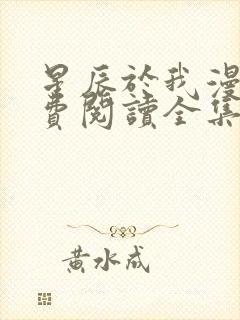 星辰於我漫
費閱讀全集
黃水成